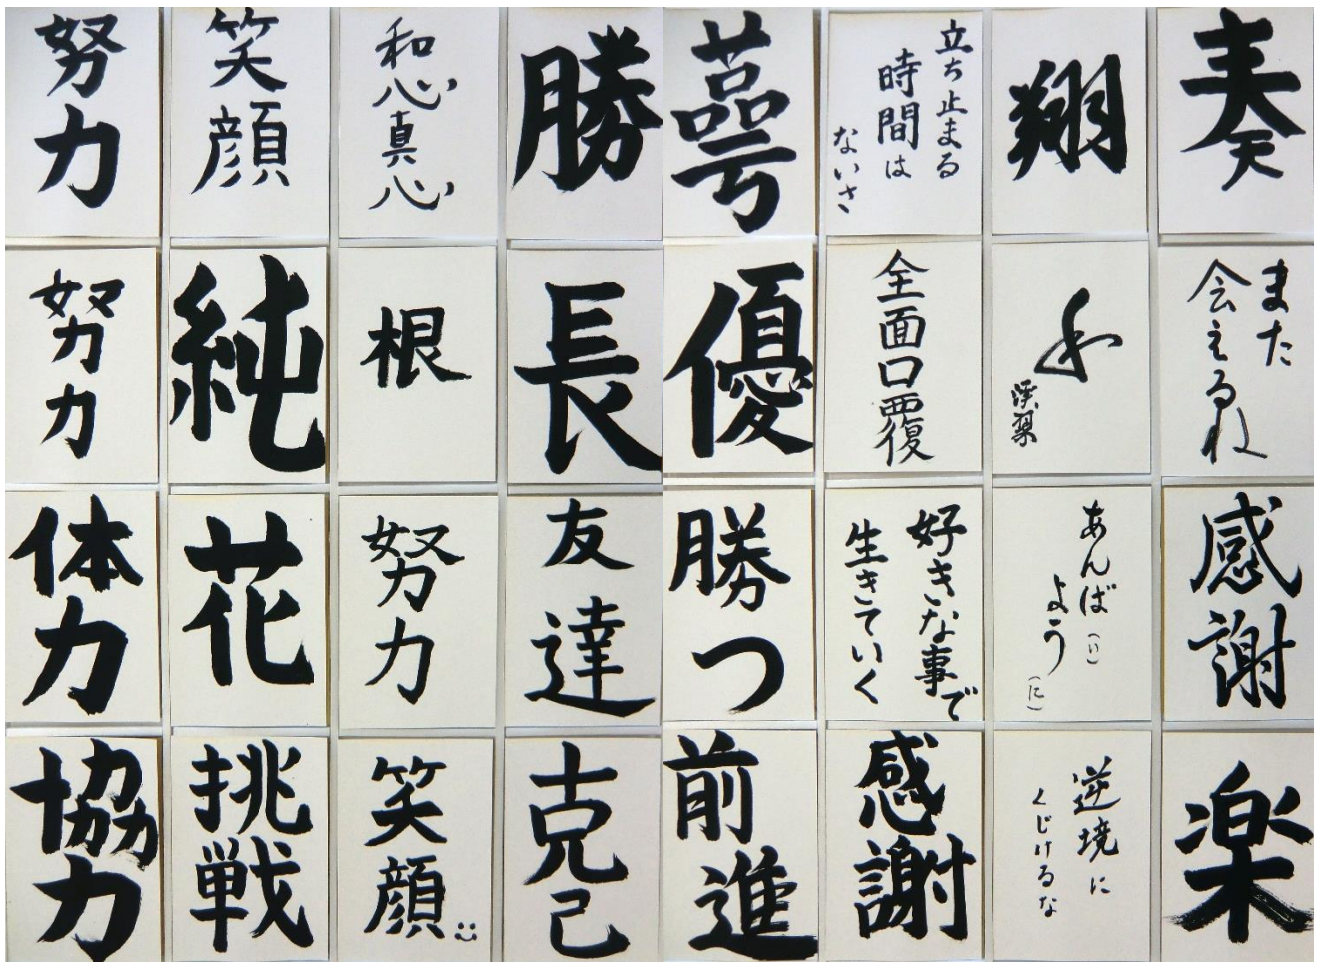 努力
笑顔
和心真心
勝
萼
立ち止まる
時間は
ないさ
翔
奏
努力
純
根
長
優
全面口覆
また
会えるね
体力
花
努力
友達
勝つ
好きな事で
生きていく
あんば(い)
よう(に)
感謝
協力
挑戦
笑顔
克己
前進
感謝
逆境に
くじけるな
楽